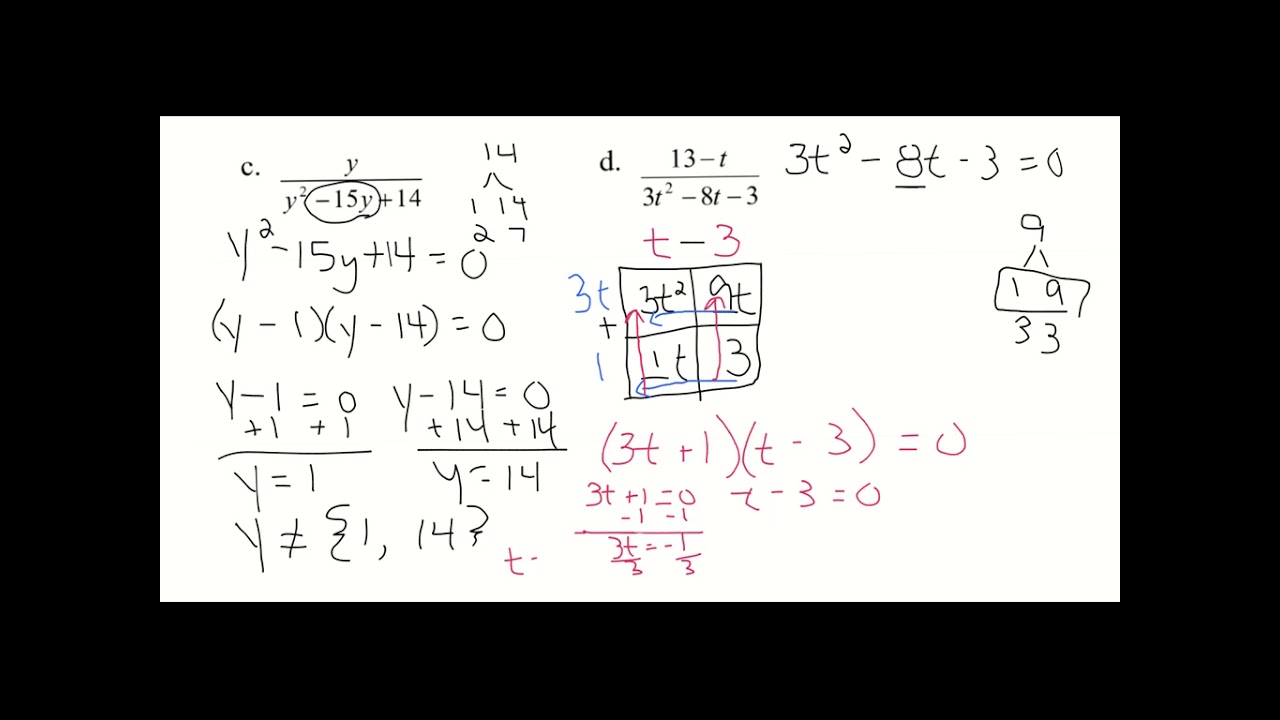 c. y / (y² −15y+14)
14
1 14
2 7
y² - 15y + 14 = 0
(y - 1)(y - 14) = 0
y - 1 = 0 y - 14 = 0
+1 +1 +14 +14
y = 1 y = 14
y ≠ {1, 14}
d. (13−t) / (3t² −8t−3)
3t² - 8t - 3 = 0
9
1 9
3 3
t - 3
3t 3t² 9t
+
1 1t 3
(3t + 1)(t - 3) = 0
3t + 1 = 0 t - 3 = 0
-1 -1
3t/3 = -1/3
t -